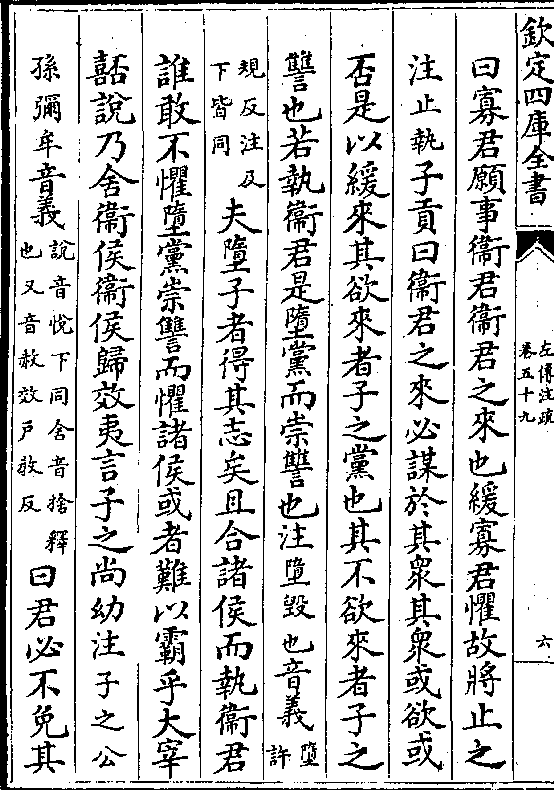 欽定四庫全書
左傳注疏
卷五十九
六
曰寡君願事衞君衞君之來也緩寡君懼故將止之
注止執子貢曰衞君之來必謀於其衆其衆或欲或
否是以緩來其欲來者子之黨也其不欲來者子之
讐也若執衞君是墮黨而崇讐也注墮毀也音義墮許
規反注及下皆同夫墮子者得其志矣且合諸侯而執衞君
誰敢不懼墮黨崇讐而懼諸侯或者難以霸乎大宰
嚭說乃舍衞侯衞侯歸效夷言子之尚幼注子之公
孫彌牟音義說音悅下同舍音捨釋也又音赦效戶教反曰君必不免其